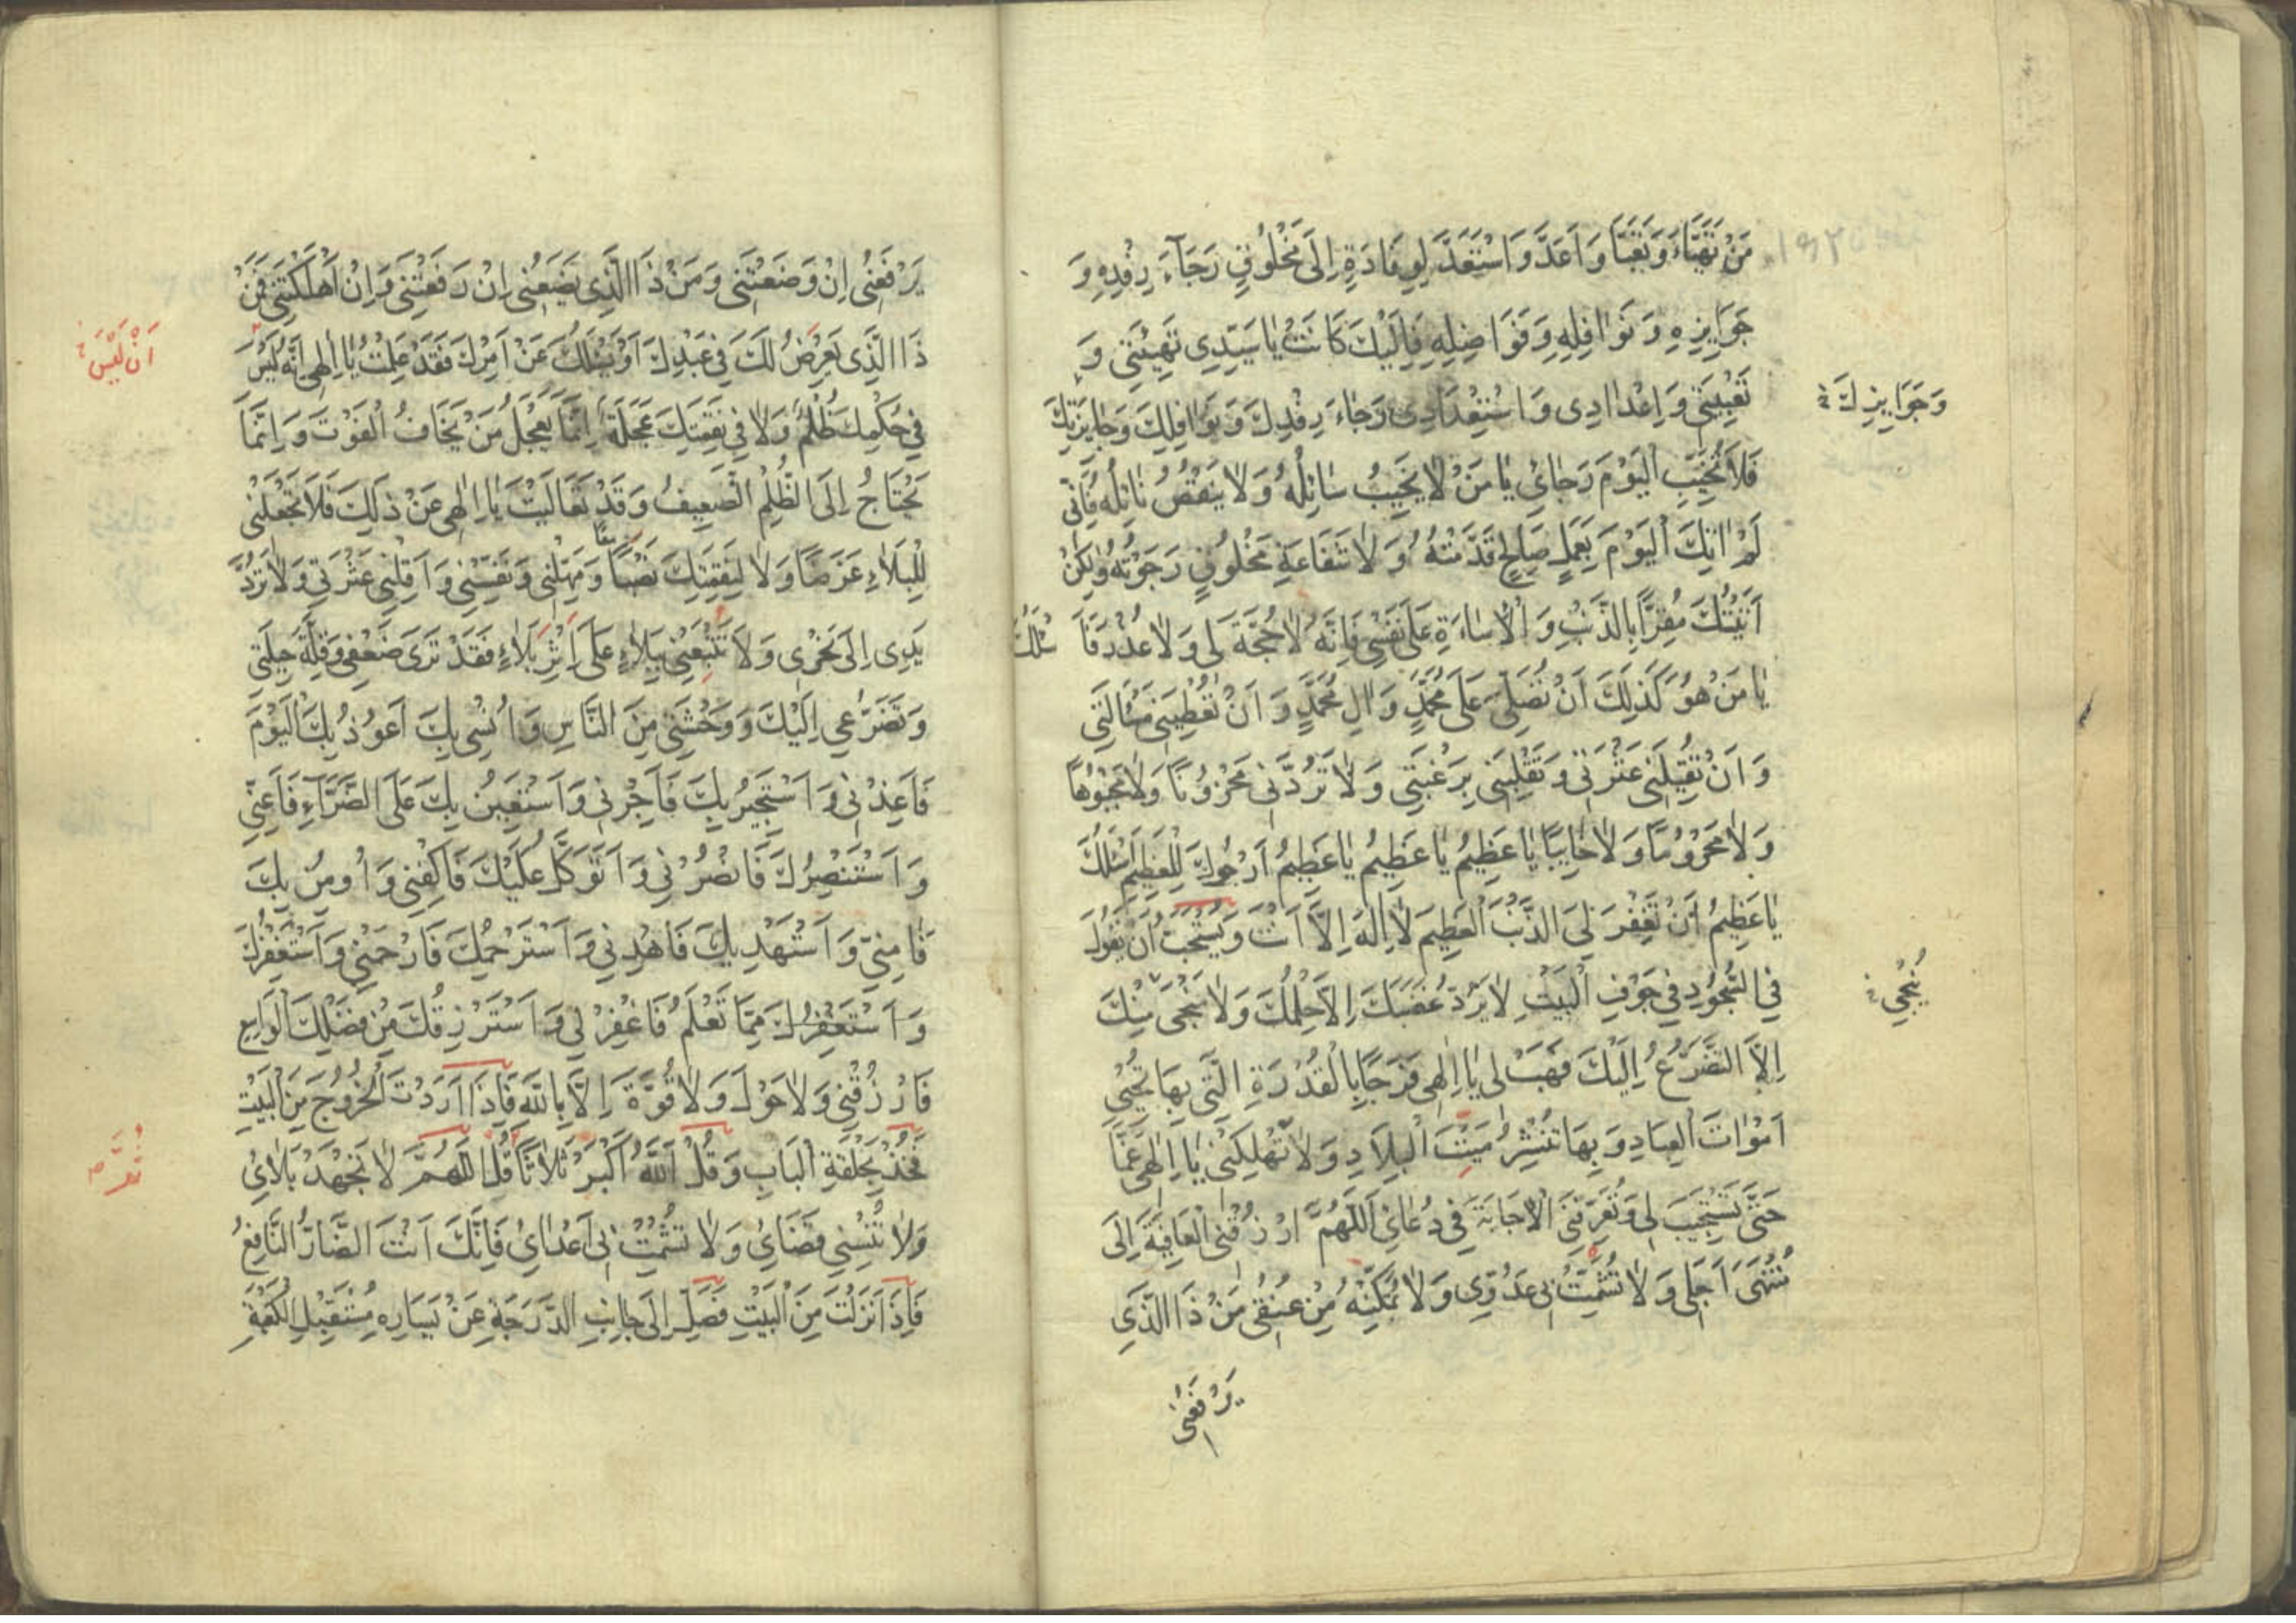 مَنْ تَهَيَّاءَ وَتَعَبَّا وَاَعَدَّ وَاسْتَعَدَّ لِوِفَادَةٍ اِلَى مَخْلُوقٍ رَجَآءَ رِفْدِهِ وَ
جَوَايِزِهِ وَنَوَافِلِهِ وَفَوَاضِلِهِ فَاِلَيْكَ كَانَتْ يَا سَيِّدِى تَهِيْئَتِى وَ
تَعْبِيَتِى وَاِعْدَادِى وَاسْتِعْدَادِى رَجَاءَ رِفْدِكَ وَنَوَافِلِكَ وَجَايِزَتِكَ
وَجَوَايِزِكَ خ
فَلَا تُخَيِّبِ الْيَوْمَ رَجَائِى يَا مَنْ لَا يَخِيبُ سَائِلُهُ وَلَا يَنْقُصُ نَائِلُهُ فَاِنِّى
لَمْ اٰتِكَ الْيَوْمَ بِعَمَلٍ صَالِحٍ قَدَّمْتُهُ وَلَا شَفَاعَةِ مَخْلُوقٍ رَجَوْتُهُ وَلٰكِنْ
اَتَيْتُكَ مُقِرًّا بِالذَّنْبِ وَالْاِسَاءَةِ عَلَى نَفْسِى فَاِنَّهُ لَا حُجَّةَ لِى وَلَا عُذْرَ فَاَ سْئَلُكَ
يَا مَنْ هُوَ كَذٰلِكَ اَنْ تُصَلِّىَ عَلَى مُحَمَّدٍ وَاٰلِ مُحَمَّدٍ وَاَنْ تُعْطِيَنِى مَسْأَلَتِى
وَاَنْ تُقِيلَنِى عَثْرَتِى وَتَقْلِبَنِى بِرَغْبَتِى وَلَا تَرُدَّنِى مَحْزُونًا وَلَا مَجْبُوهًا
وَلَا مَحْرُومًا وَلَا خَايِبًا يَا عَظِيمُ يَا عَظِيمُ يَا عَظِيمُ اَرْجُوكَ لِلْعَظِيمِ اَسْئَلُكَ
يَا عَظِيمُ اَنْ تَغْفِرَ لِىَ الذَّنْبَ الْعَظِيمَ لَا اِلٰهَ اِلَّا اَنْتَ وَيُسْتَحَبُّ اَنْ يَقُولَ
فِى السُّجُودِ فِى جَوْفِ الْبَيْتِ لَا يَرُدُّ غَضَبَكَ اِلَّا حِلْمُكَ وَلَا يُنْجِى مِنْكَ
يُنْجِى خ
اِلَّا التَّضَرُّعُ اِلَيْكَ فَهَبْ لِى يَا اِلٰهِى فَرَجًا بِالْقُدْرَةِ الَّتِى بِهَا تُحْيِى
اَمْوَاتَ الْعِبَادِ وَبِهَا تَنْشُرُ مَيْتَ الْبِلَادِ وَلَا تُهْلِكْنِى يَا اِلٰهِى غَمًّا
حَتَّى تَسْتَجِيبَ لِى وَتُعَرِّفَنِى الْاِجَابَةَ فِى دُعَائِى اَللّٰهُمَّ ارْزُقْنِى الْعَافِيَةَ اِلَى
مُنْتَهَى اَجَلِى وَلَا تُشْمِتْ بِى عَدُوِّى وَلَا تُمَكِّنْهُ مِنْ عُنُقِى مَنْ ذَا الَّذِى
يَرْفَعُنِى
يَرْفَعُنِى اِنْ وَضَعْتَنِى وَمَنْ ذَا الَّذِى يَضَعُنِى اِنْ رَفَعْتَنِى وَاِنْ اَهْلَكْتَنِى فَمَنْ
ذَا الَّذِى يَعْرِضُ لَكَ فِى عَبْدِكَ اَوْ يَسْئَلُكَ عَنْ اَمْرِكَ فَقَدْ عَلِمْتُ يَا اِلٰهِى اَنَّهُ لَيْسَ
اَنْ لَيْسَ خ
فِى حُكْمِكَ ظُلْمٌ وَلَا فِى نَقِمَتِكَ عَجَلَةٌ اِنَّمَا يَعْجَلُ مَنْ يَخَافُ الْفَوْتَ وَاِنَّمَا
يَحْتَاجُ اِلَى الظُّلْمِ الضَّعِيفُ وَقَدْ تَعَالَيْتَ يَا اِلٰهِى عَنْ ذٰلِكَ فَلَا تَجْعَلْنِى
لِلْبَلَاءِ غَرَضًا وَلَا لِنَقِمَتِكَ نَصَبًا وَمَهِّلْنِى وَنَفِّسْنِى وَاَقِلْنِى عَثْرَتِى وَلَا تَرُدَّ
يَدِى اِلَى نَحْرِى وَلَا تُتْبِعْنِى بِبَلَاءٍ عَلَى اَثَرِ بَلَاءٍ فَقَدْ تَرَى ضَعْفِى وَقِلَّةَ حِيلَتِى
وَتَضَرُّعِى اِلَيْكَ وَوَحْشَتِى مِنَ النَّاسِ وَاُنْسِى بِكَ اَعُوذُ بِكَ الْيَوْمَ
فَاَعِذْنِى وَاَسْتَجِيرُ بِكَ فَاَجِرْنِى وَاَسْتَعِينُ بِكَ عَلَى الضَّرَّآءِ فَاَعِنِّى
وَاَسْتَنْصِرُكَ فَانْصُرْنِى وَاَتَوَكَّلُ عَلَيْكَ فَاكْفِنِى وَاُومِنُ بِكَ
فَاٰمِنِّى وَاَسْتَهْدِيكَ فَاهْدِنِى وَاَسْتَرْحِمُكَ فَارْحَمْنِى وَاَسْتَغْفِرُكَ
وَاَسْتَغْفِرُكَ مِمَّا تَعْلَمُ فَاغْفِرْ لِى وَاَسْتَرْزِقُكَ مِنْ فَضْلِكَ الْوَاسِعِ
فَارْزُقْنِى وَلَا حَوْلَ وَلَا قُوَّةَ اِلَّا بِاللّٰهِ فَاِذَا اَرَدْتَ الْخُرُوجَ مِنَ الْبَيْتِ
فَخُذْ بِحَلْقَةِ الْبَابِ وَقُلْ اَللّٰهُ اَكْبَرُ ثَلَاثًا قُلْ اللّٰهُمَّ لَا تَجْهَدْ بَلَائِى
وَلَا تُنْسِنِى قَضَائِى وَلَا تُشْمِتْ بِى اَعْدَائِى فَاِنَّكَ اَنْتَ الضَّارُّ النَّافِعُ
فَاِذَا نَزَلْتَ مِنَ الْبَيْتِ فَصَلِّ اِلَى جَانِبِ الدَّرَجَةِ عَنْ يَسَارِهِ مُسْتَقْبِلَ الْكَعْبَةِ